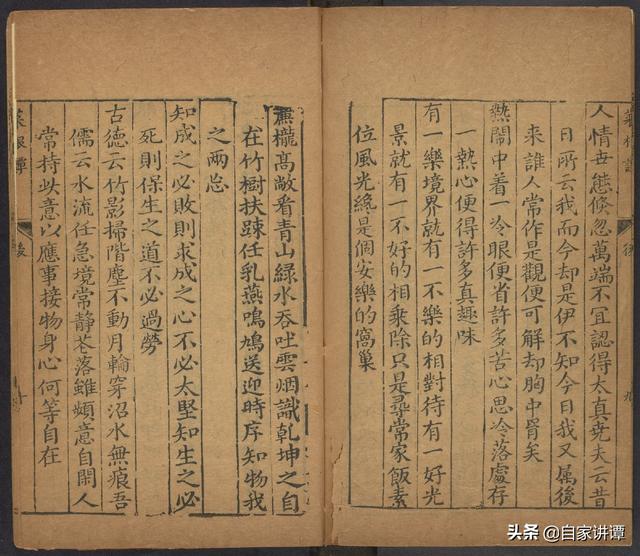 人情世態倐忽萬端不宜認得太真堯夫云昔
日所云我而今却是伊不知今日我又属後
來誰人常作是觀便可解却胸中罥矣
熱鬧中着一冷眼便省許多苦心思冷落處存
一熱心便得許多真趣味
有一樂境界就有一不樂的相對待有一好光
景就有一不好的相乘除只是尋常家飯素
位風光纔是個安樂的窩巢
菜根譚
後
簾櫳高敞看青山綠水吞吐雲烟識乾坤之自
在竹樹扶踈任乳燕鳴鳩送迎時序知物我
之兩忘
知成之必敗則求成之心不必太堅知生之必
死則保生之道不必過勞
古德云竹影掃階塵不動月輪穿沼水無痕吾
儒云水流任急境常静花落雖頻意自閒人
常持此意以應事接物身心何等自在
菜根譚
後
头条 @自家讲谭